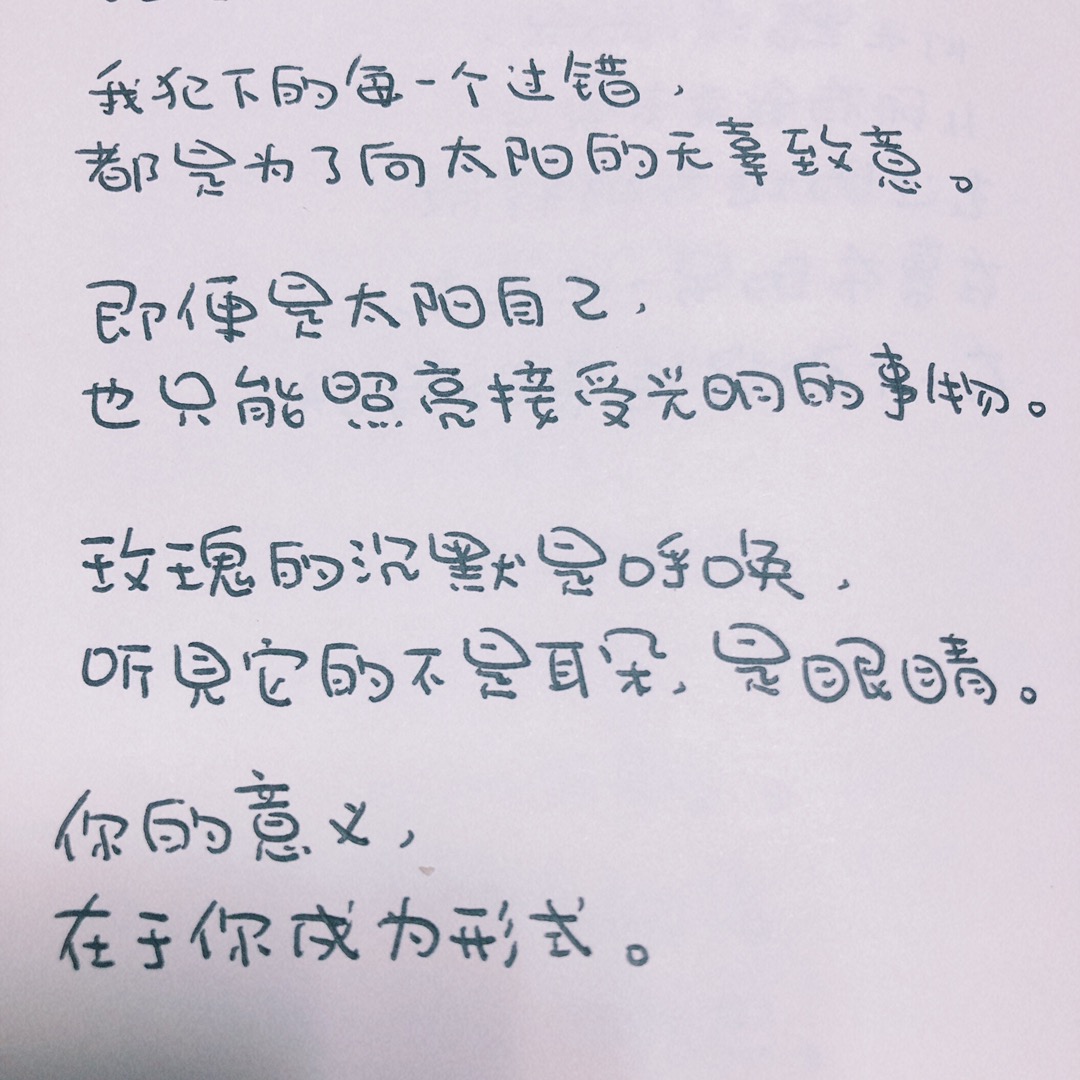 我犯下的每一个过错，
都是为了向太阳的无辜致意。
即便是太阳自己，
也只能照亮接受光明的事物。
玫瑰的沉默是呼唤，
听见它的不是耳朵，是眼睛。
你的意义，
在于你成为形式。